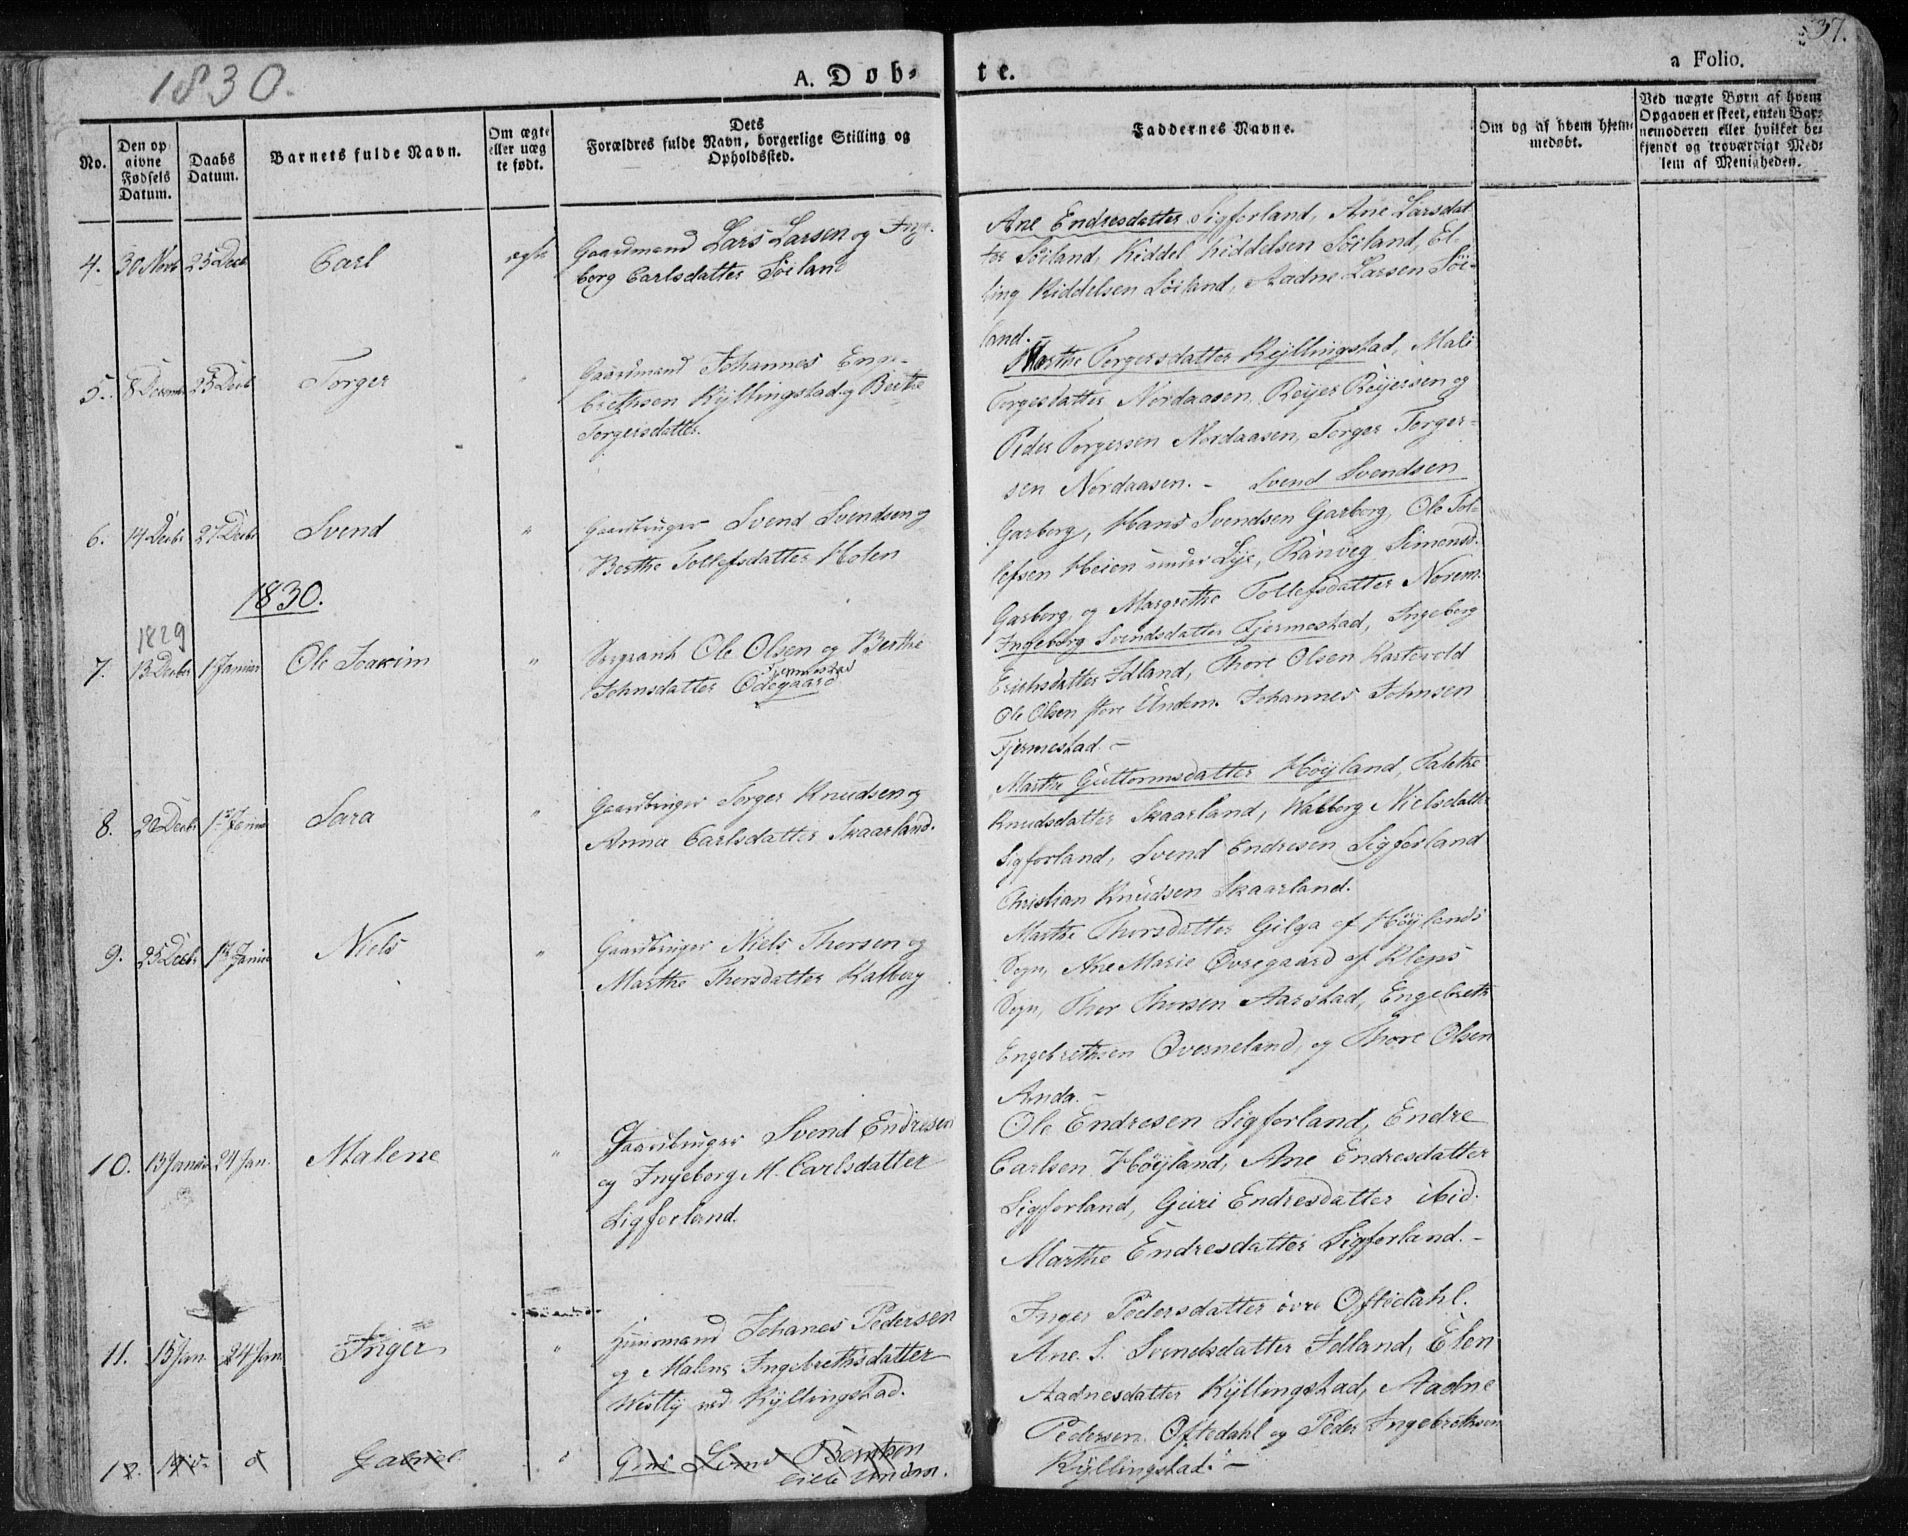 37.
1830.
A. Døb-
te.
a Folio.
No.
Den op
givne
Fødsels
Datum.
Daabs
Datum.
Barnets fulde Navn.
Om ægte
eller uæg
te født.
Dets
Forældres fulde Navn, borgerlige Stilling og
Opholdssted.
Faddernes Navne.
Om og af hvem hjem-
medøbt.
Ved uægte Børn af hvem
Opgaven er skeet, enten Bar-
nemoderen eller hvilket be-
kjendt og troværdigt Med-
lem af Menigheden.
4. 30 Novb 25 Decb Carl ægte
Gaardmand Lars Larsen og Inge-
borg Carlsdatter Söiland
Ane Endresdatter Sigforland, Ane Larsdat
ter Söiland, Kiddel Kiddelsen Söiland, El-
ling Kiddelsen Söiland, Aadne Larsen Söi-
land.
5. 8 Decemb 25 Decb Torger "
Gaardmand Johannes Enge-
brethsen Kÿllingstad og Berthe
Torgersdatter.
Marthe Torgersdatter Kÿllingstad, Mali
Torgersdatter Nordaasen, Reÿer Reÿersen og
Peder Torgersen Nordaasen, Torger Torger-
sen Nordaasen. -
6. 14 Decbr 27 Decbr Svend "
Gaardbruger Svend Svendsen og
Berthe Tollefsdatter Holen
Svend Svendsen
Garborg, Hans Svendsen Garborg, Ole Tol-
lefsen Heien under Lÿe, Ranveg Simonsd.
Garborg, og Margrethe Tollefsdatter Norem.
1830.
1829
7. 13 Decbr 1 Januar Ole Joakim "
Sergeant Ole Olsen og Berthe
Johnsdatter Ødegaard
Fjermestad
Ingeborg Svendsdatter Fjermestad, Ingeborg
Erichsdatter Idland, Thore Olsen Kartevold
Ole Olsen store Undem. Johannes Johnsen
Fjermestad. -
8. 20 Decbr 1 Januar Sara "
Gaardbruger Torger Knudsen og
Anna Carlsdatter Skaarland.
Marthe Guttormsdatter Höÿland, Talethe
Knudsdatter Skaarland, Walborg Nielsdatter
Sigforland, Svend Endresen Sigforland
Christian Knudsen Skaarland.
9. 25 Decbr 1 Januar Niels "
Gaardbruger Niels Thorsen og
Marthe Thorsdatter Kalberg
Marthe Thorsdatter Gilga af Höÿlands
Sogn, Ane Marie Øvregaard af Kleps
Sogn, Thor Thorsen Aarstad, Engebreth
Engebrethsen Qverneland, og Thore Olsen
Anda. -
10. 13 Januar 24 Jan. Malene "
Gaardbruger Svend Endresen
og Ingeborg M. Carlsdatter
Sigforland.
Ole Endresen Sigforland, Endre
Carlsen Höÿland, Ane Endresdatter
Sigforland, Guri Endresdatter ibid.
Marthe Endresdatter Sigforland. -
11. 15 Jan. 24 Jan. Inger "
Huusmand Johanes Pedersen
og Malene Ingebrethsdatter
ved Kÿllingstad.
Inger Pedersdatter övre Oftedahl.
Ane S. Svendsdatter Idland, Elen
Aadnesdatter Kÿllingstad, Aadne
Pedersen Oftedahl og Peder Ingebrethsen
Kÿllingstad. -
12. Gabriel